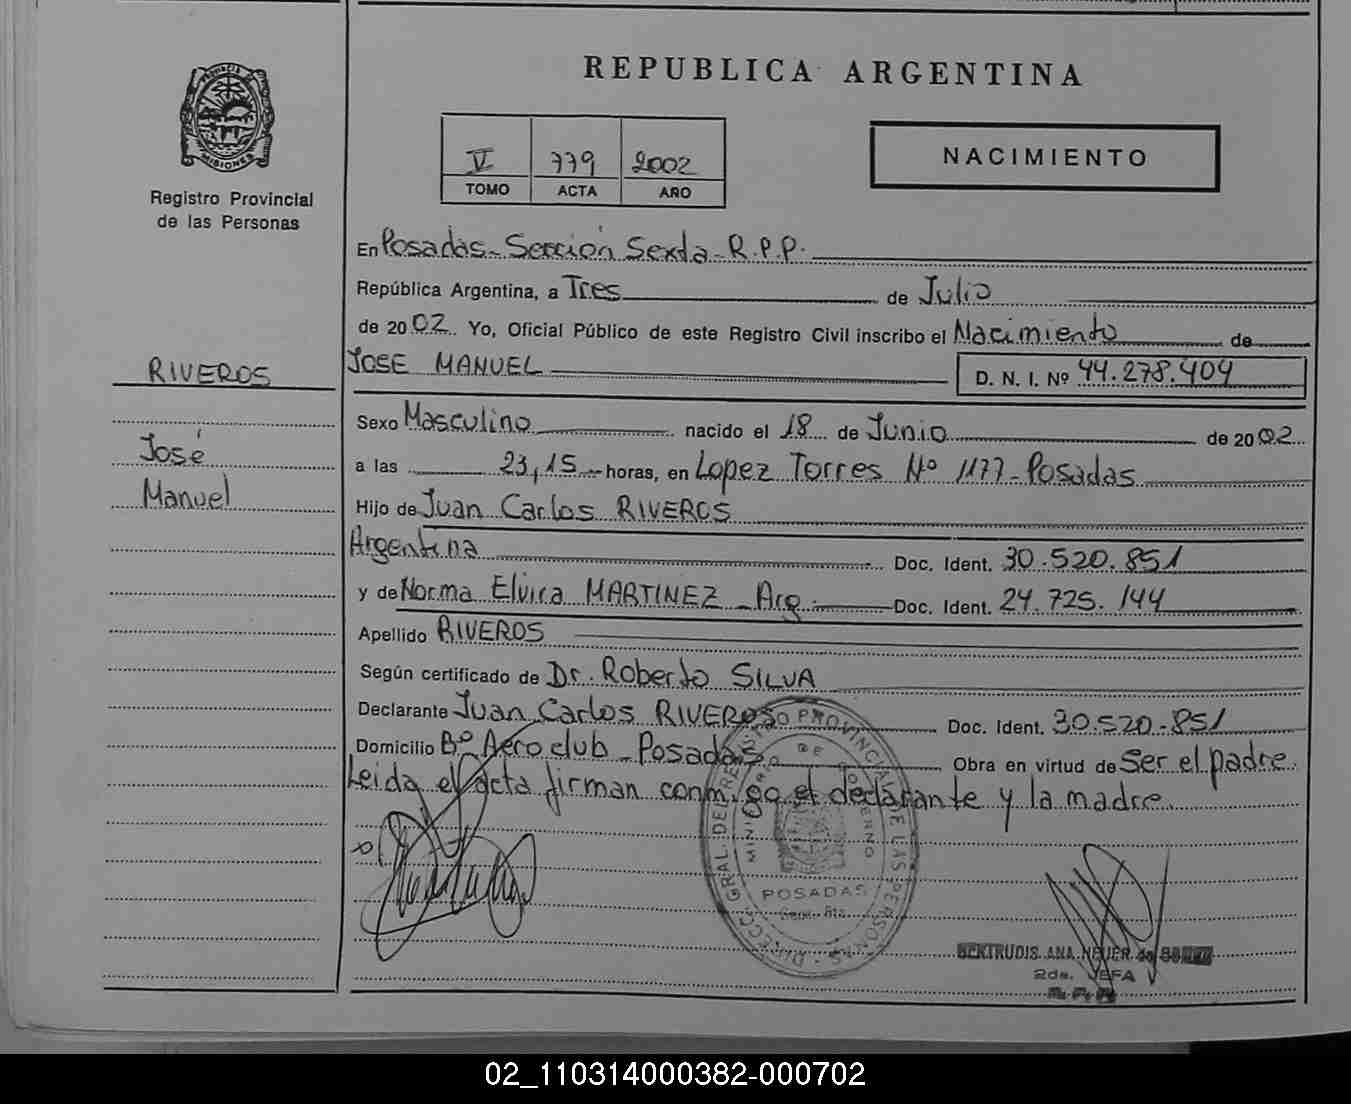 REPUBLICA ARGENTINA
MISIONES
Registro Provincial
de las Personas
V 779 2002
TOMO ACTA AÑO
NACIMIENTO
En Posadas - Sección Sexta - R.P.P.
República Argentina, a Tres de Julio
de 2002. Yo, Oficial Público de este Registro Civil inscribo el Nacimiento de
RIVEROS
José
Manuel
JOSE MANUEL D. N. I. Nº 44.278.404
Sexo Masculino nacido el 18 de Junio de 2002
a las 23,15 horas, en Lopez Torres Nº 1177 - Posadas
Hijo de Juan Carlos RIVEROS
Argentina Doc. Ident. 30.520.851
y de Norma Elvira MARTINEZ - Arg. Doc. Ident. 24.725.144
Apellido RIVEROS
Según certificado de Dr. Roberto SILVA
Declarante Juan Carlos RIVEROS Doc. Ident. 30.520.851
Domicilio Bº Aeroclub - Posadas Obra en virtud de Ser el padre.
Leida el acta firman conmigo el declarante y la madre.
DIRECC. GRAL. DEL REGISTRO PROVINCIAL DE LAS PERSONAS
MINISTERIO DE GOBIERNO
POSADAS
GERTRUDIS ANA NEUER de
2da. JEFA
02_110314000382-000702